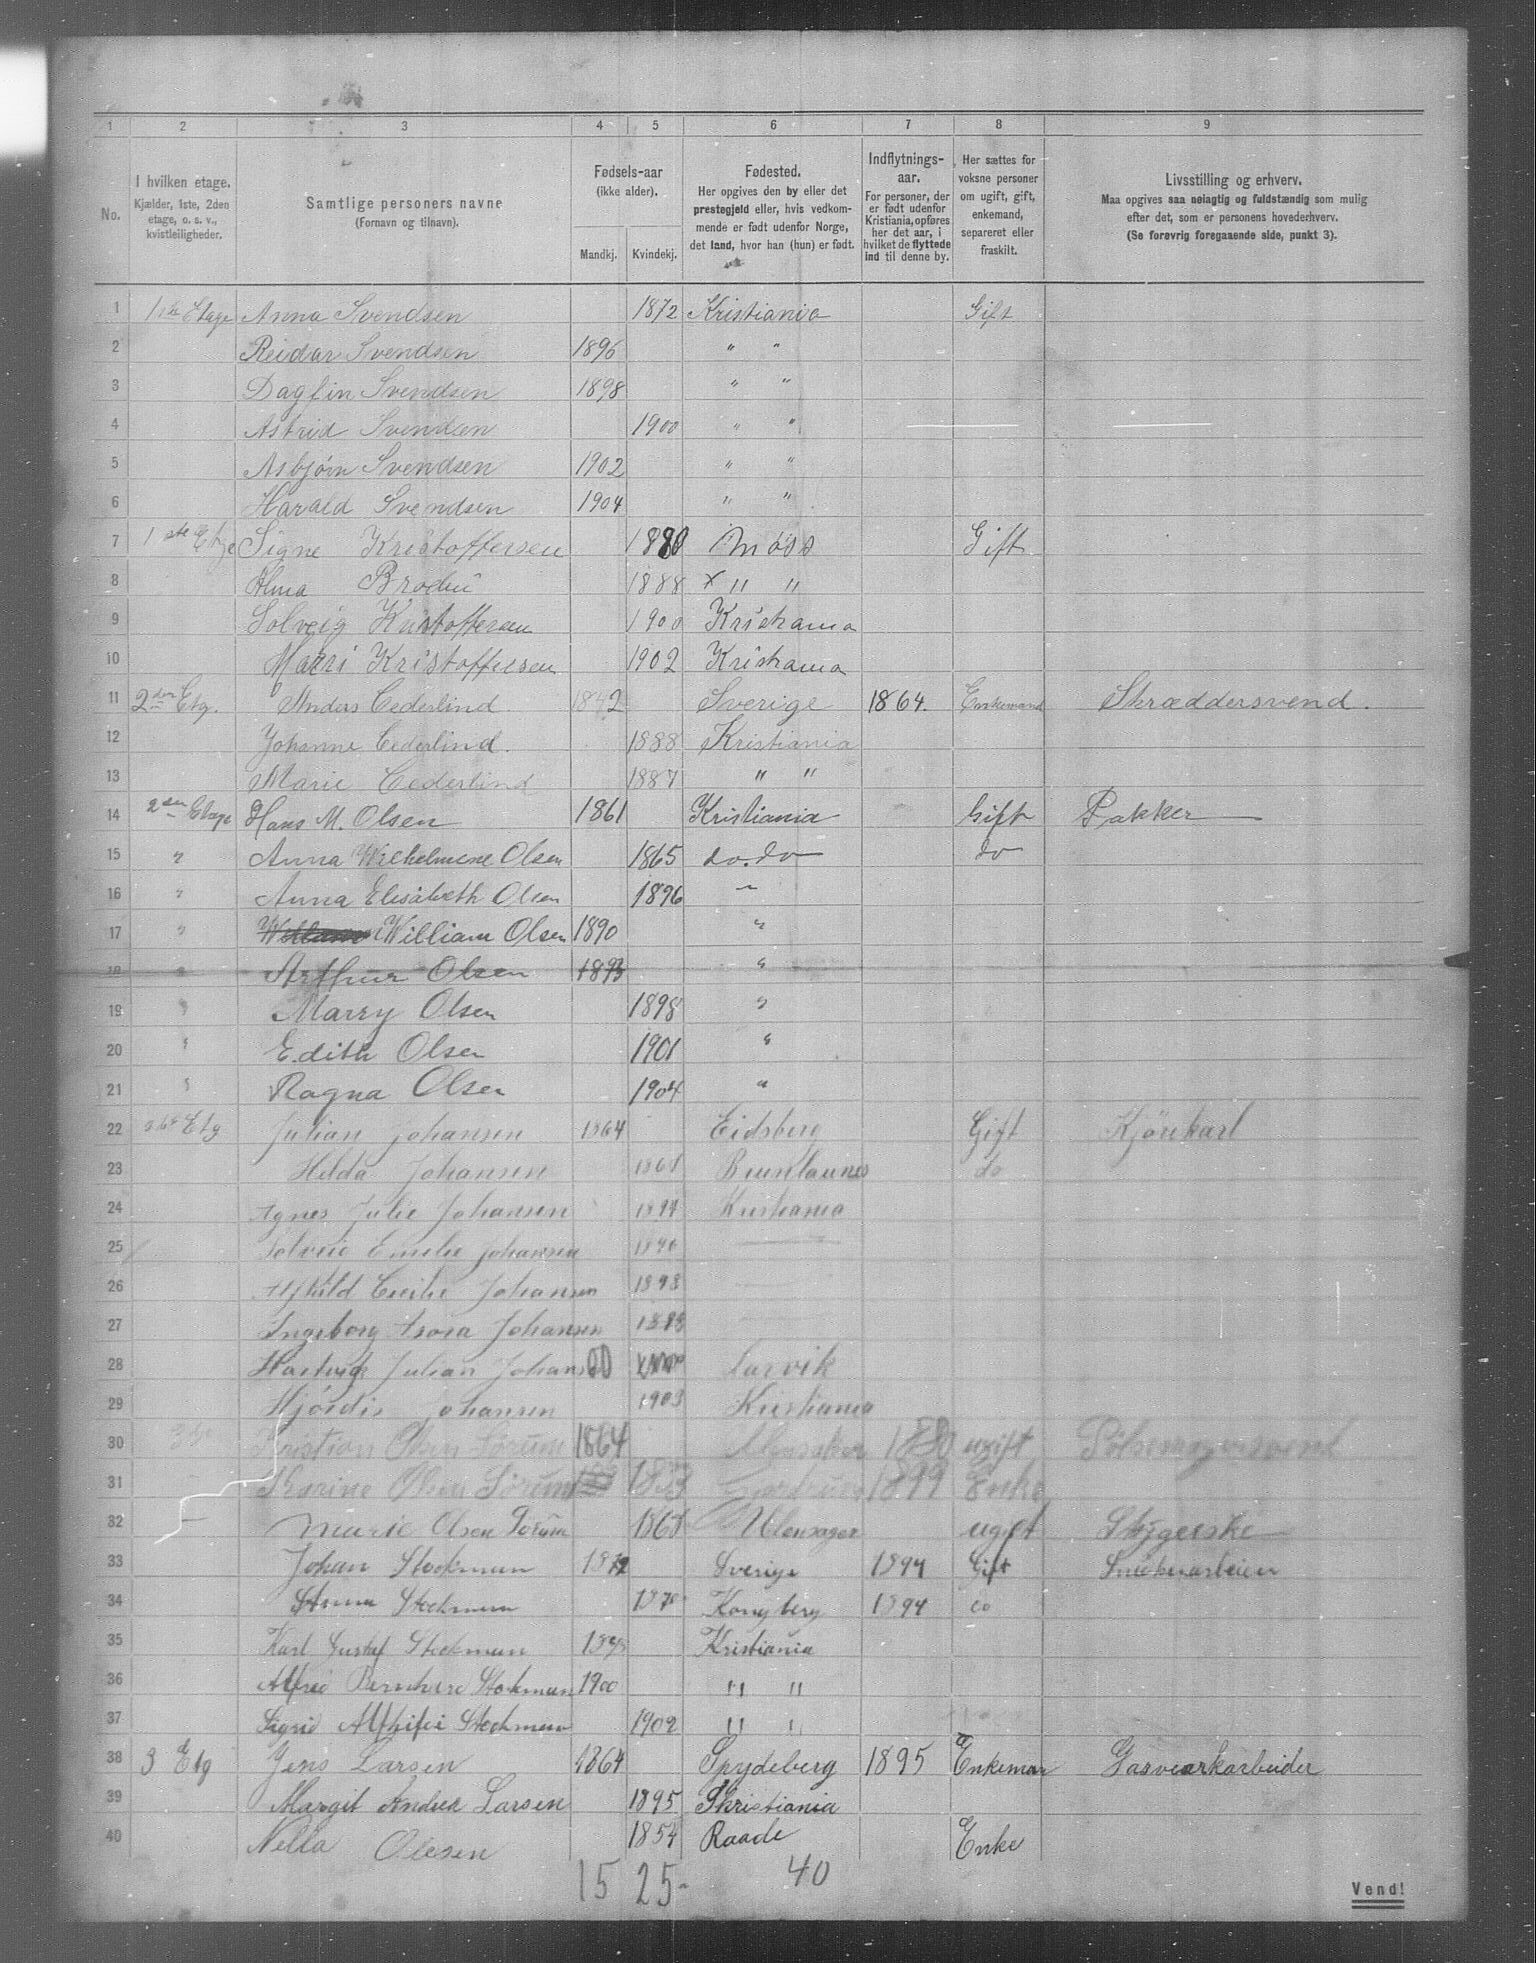 1 2 3 4 5 6 7 8 9
No.
I hvilken etage.
Kjælder, 1ste, 2den
etage, o. s. v.,
kvistleiligheder.
Samtlige personers navne
(Fornavn og tilnavn).
Fødsels-aar
(ikke alder).
Mandkj. Kvindekj.
Fødested.
Her opgives den by eller det
prestegjeld eller, hvis vedkom-
mende er født udenfor Norge,
det land, hvor han (hun) er født.
Indflytnings-
aar.
For personer, der
er født udenfor
Kristiania, opføres
her det aar, i
hvilket de flyttede
ind til denne by.
Her sættes for
voksne personer
om ugift, gift,
enkemand,
separeret eller
fraskilt.
Livsstilling og erhverv.
Maa opgives saa nøiagtig og fuldstændig som mulig
efter det, som er personens hovederhverv.
(Se forøvrig foregaaende side, punkt 3).
1 1ste Etage Anna Svendsen 1872 Kristiania Gift
2 Reidar Svendsen 1896 " "
3 Dagfin Svendsen 1898 " "
4 Astrid Svendsen 1900 " "
5 Asbjørn Svendsen 1902 " "
6 Harald Svendsen 1904 " "
7 1ste Etge Signe Kristoffersen 1880 Moss Gift
8 Alma 1888 x " "
9 Solveig Kristoffersen 1900 Kristiania
10 Marri Kristoffersen 1902 Kristiania
11 2den Etg. Anders Cederlind 1842 Sverige 1864. Enkemand Skræddersvend.
12 Johanne Cederlind. 1888 Kristiania
13 Marie Cederlind 1887 " "
14 2den Etage Hans M. Olsen 1861 Kristiania Gift Pakker
15 " Anna Wilhelmene Olsen 1865 do. do do
16 " Anna Elisabeth Olsen 1896 "
17 " William Olsen 1890 "
18 " Arthur Olsen 1893 "
19 " Marry Olsen 1898 "
20 " Edith Olsen 1901 "
21 " Ragna Olsen 1904 "
22 Etg Julian Johansen 1864 Eidsberg Gift Kjørekarl
23 Hilda Johansen Brunlaunes do
24 Agnes Julie Johansen Kristiania
25 Solveie Emelie Johansen
26 Cecilie Johansen
27 Ingeborg Johansen
28 Hartvig Julian Johansen Larvik
29 Hjördis Johansen 1903 Kristiania
30 Kristian Olsen Sørum 1864 ugift
31 Karine Olsen Sörum 1899 Enke
32 Marie Olsen Sorum Ulensager ugift
33 Johan Stockman Sverige 1894 Gift
34 Anna Stockman Kongsberg 1894 do
35 Karl Gustaf Stockman Kristiania
36 Alfred Stockman 1900 " "
37 Sigrid Stockman 1902 " "
38 3 Etg Jens Larsen 1864 Spydeberg 1895 Enkeman Gasverkarbeider
39 Margit Andrea Larsen 1895 Kristiania
40 Nella Olesen 1854 Raade Enke
15 25- 40
Vend!